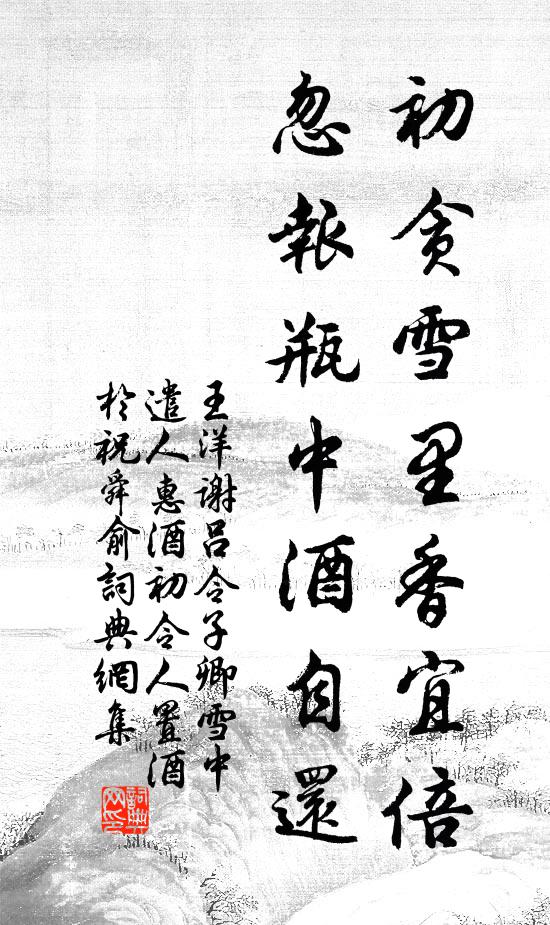 初貪雪里香宜倍
忽報瓶中酒自還
王洋謝呂令子卿雪中
遣人惠酒初令人置酒
於祝舜俞詞典網集